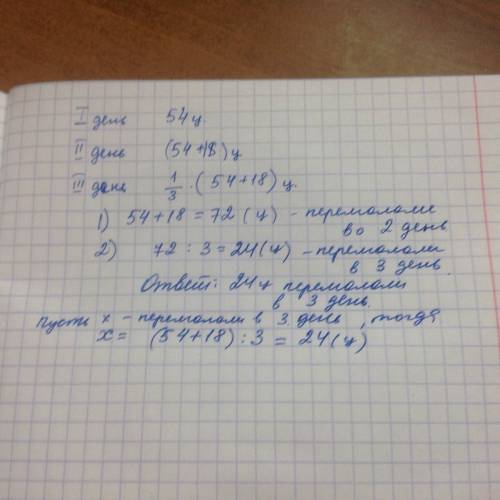 I день 54 ц.
II день (54+18) ц.
III день 1/3 · (54+18) ц.
1) 54+18=72 (ц) - перемололи
во 2 день
2) 72 : 3 = 24 (ц) - перемололи
в 3 день.
Ответ: 24 ц перемололи
в 3 день.
Пусть x - перемололи в 3 день, тогда
x = (54+18) : 3 = 24 (ц)